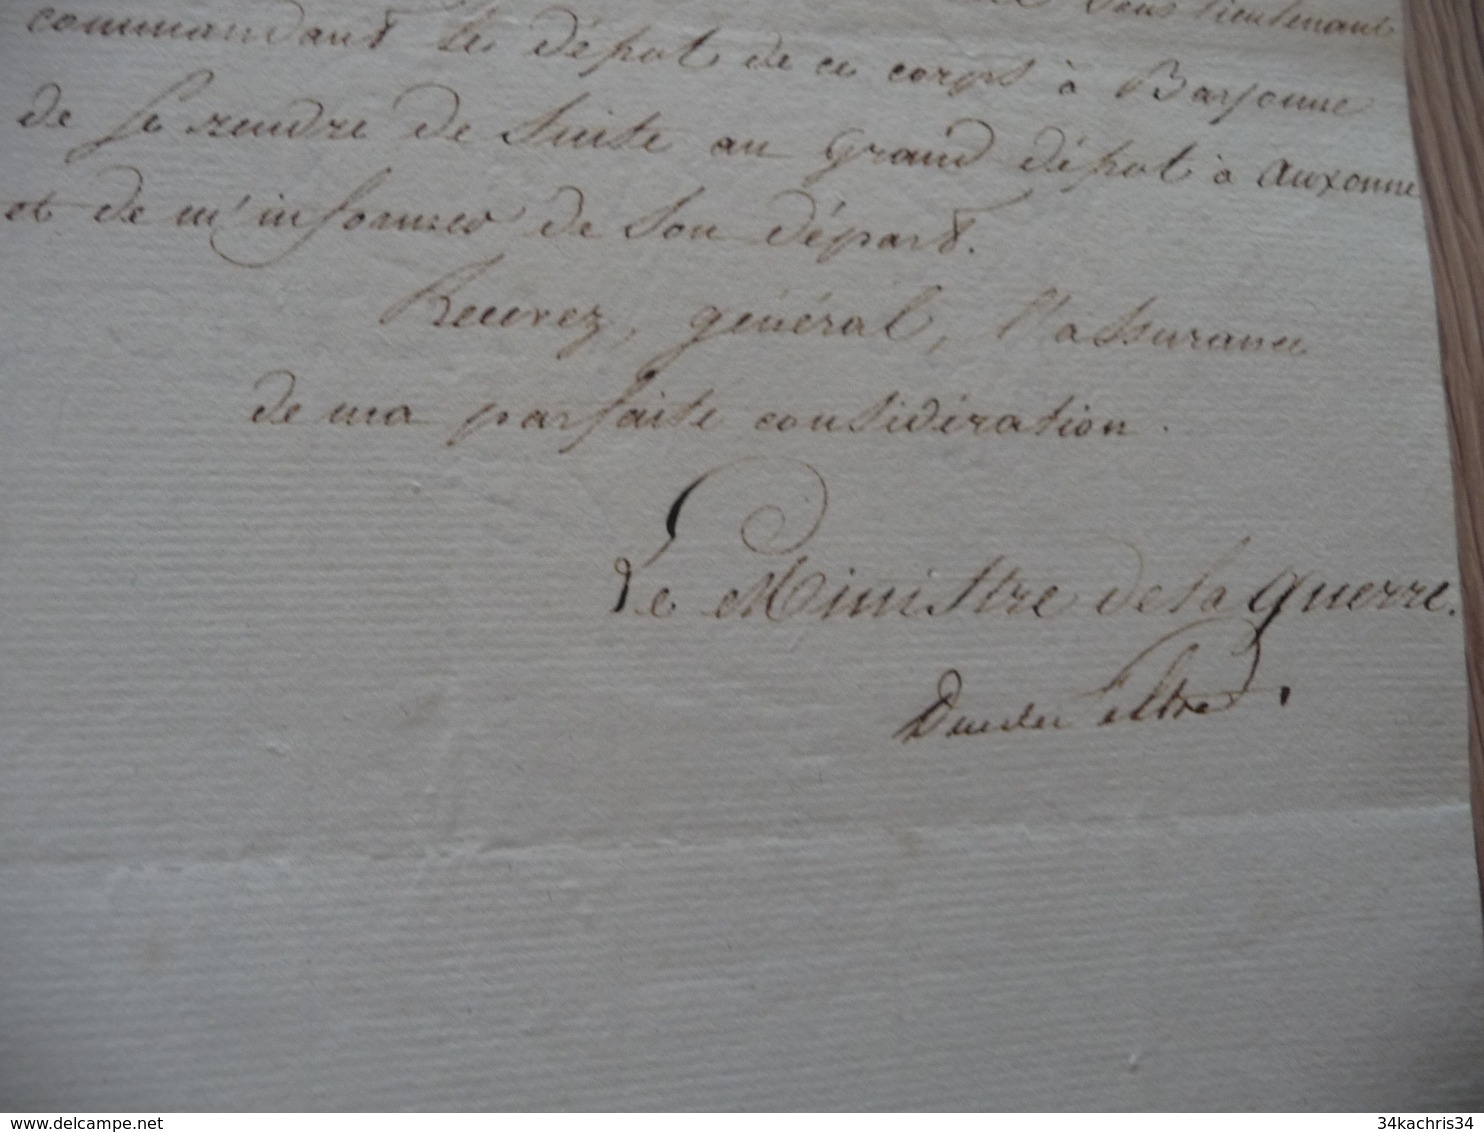 sous lieutenant
commandant le dépot de ce corps à Bayonne
de se rendre de suite au grand dépot à auxonne
et de m'informer de son départ.
Recevez, général, l'assurance
de ma parfaite considération.
Le Ministre de la guerre.
Duc de feltre
delcampe.net
34kachris34